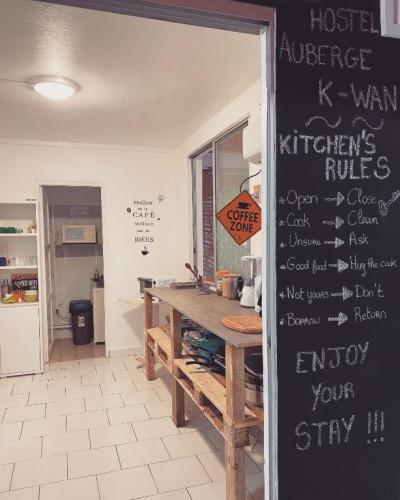 HOSTEL
AUBERGE
K-WAN
KITCHEN'S
RULES
Open → Close
Cook → Clean
Unsure → Ask
Good food → Hug the cook
Not yours → Don't
Borrow → Return
ENJOY
YOUR
STAY !!!
COFFEE
ZONE
Meilleur
CAFÉ
Meilleures
IDÉES